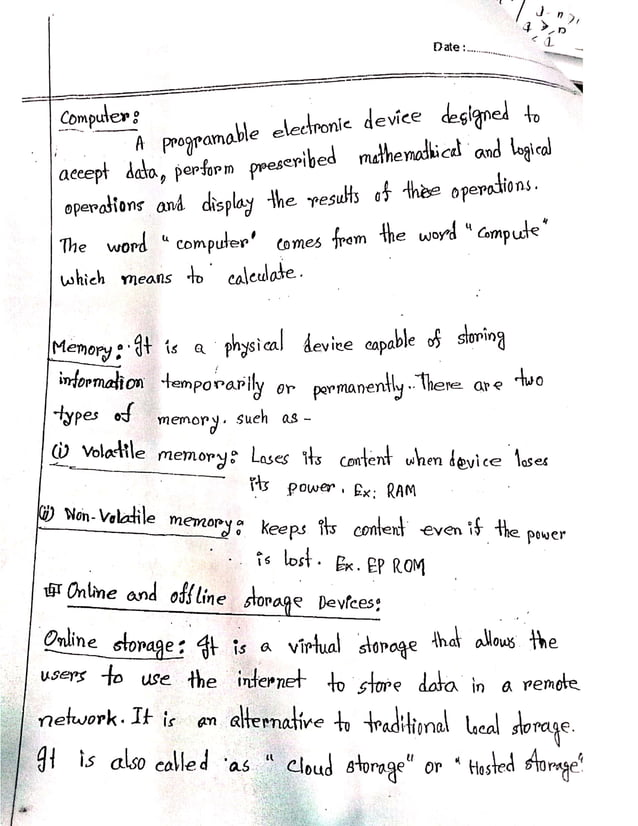 Date :..............
Computer:
A programable electronic device designed to
accept data, perform prescribed mathemathical and logical
operations and display the results of these operations.
The word "computer" comes from the word "Compute"
which means to calculate.
Memory: It is a physical device capable of storing
information temporarily or permanently. There are two
types of memory. such as -
(i) Volatile memory: Loses its content when device loses
its power. Ex: RAM
(ii) Non-Volatile memory: Keeps its content even if the power
is lost. Ex. EPROM
Online and offline storage Devices:
Online storage: It is a virtual storage that allows the
users to use the internet to store data in a remote
network. It is an alternative to traditional local storage.
It is also called as "Cloud storage" or "Hosted storage".